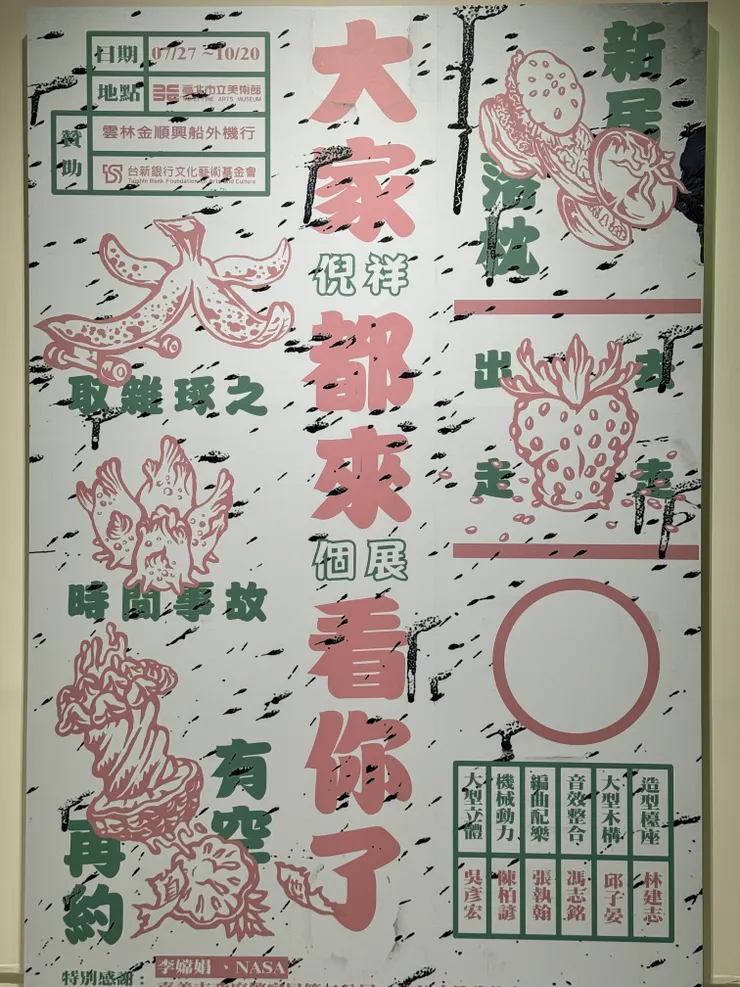 日期 07/27 ~10/20
地點 臺北市立美術館
TAIPEI FINE ARTS MUSEUM
贊助
雲林金順興船外機行
台新銀行文化藝術基金會
Taishin Bank Foundation for Arts and Culture
大家
倪祥
都來
個展
看你了
新居
落枕
出去
走走
取雜琢之
時間事故
有空
再約
造型檯座 林建志
大型木構 邱子晏
音效整合 馮志銘
編曲配樂 張執翰
機械動力 陳柏諺
大型立體 吳彥宏
特別感謝：
李嫦娟、NASA